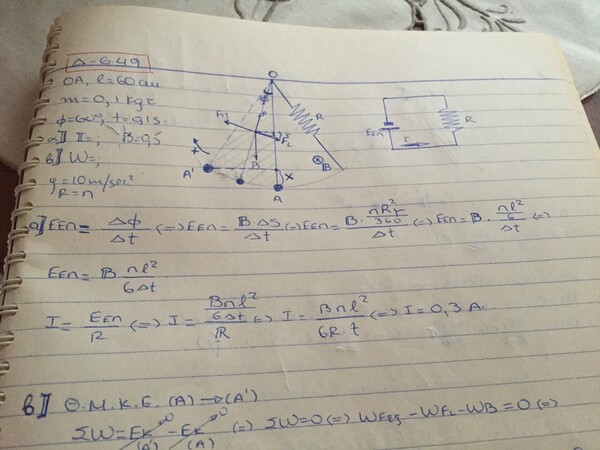 Δ-6.49
ΟΑ, l=60cm
m=0,1kgr
φ=60°, t=0,1s.
α]] I=; B=0,5
β]] W=;
g=10m/sec²
R=π
O
R
R
I
B
B
A'
A
x
α]] Eεπ= Δφ/Δt (=) Eεπ= B·ΔS/Δt (=) Eεπ= B·πR²φ/360/Δt (=) Eεπ= B·πl²/6/Δt (=)
Eεπ= B πl²/6Δt
I= Eεπ/R (=) I= Bπl²/6Δt/R (=) I= Bπl²/6R·t (=) I=0,3 A.
β]] Θ.Μ.Κ.Ε. (A)→(A')
ΣW=Eκ(A') - Eκ(A) (=) ΣW=0 (=) WFεξ - WFL - WB = 0 (=)